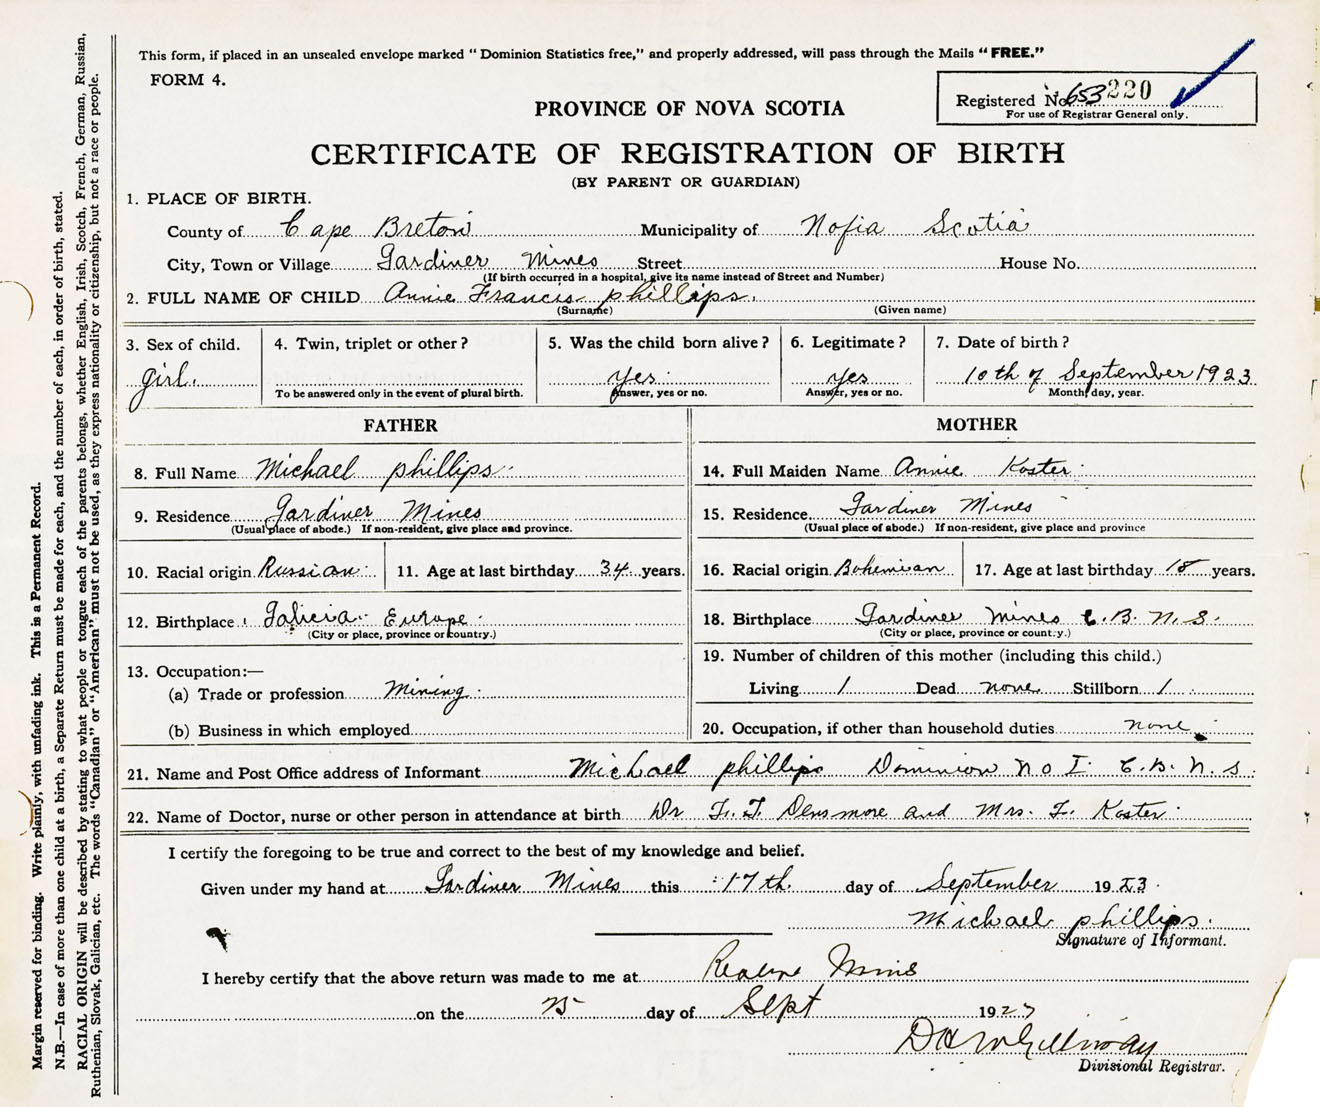 This form, if placed in an unsealed envelope marked "Dominion Statistics free," and properly addressed, will pass through the Mails "FREE."
FORM 4.
Registered No. 653 220
For use of Registrar General only.
PROVINCE OF NOVA SCOTIA
CERTIFICATE OF REGISTRATION OF BIRTH
(BY PARENT OR GUARDIAN)
1. PLACE OF BIRTH.
County of Cape Breton Municipality of Nofia Scotia
City, Town or Village Gardiner Mines Street House No.
(If birth occurred in a hospital, give its name instead of Street and Number)
2. FULL NAME OF CHILD Annie Francis phillips.
(Surname) (Given name)
3. Sex of child. 4. Twin, triplet or other? 5. Was the child born alive? 6. Legitimate? 7. Date of birth?
girl. yes yes 10th of September 1923
To be answered only in the event of plural birth. Answer, yes or no. Answer, yes or no. Month, day, year.
FATHER
8. Full Name Michael phillips
9. Residence Gardiner Mines
(Usual place of abode.) If non-resident, give place and province.
10. Racial origin Russian 11. Age at last birthday 34 years.
12. Birthplace Galicia Europe
(City or place, province or country.)
13. Occupation:—
(a) Trade or profession Mining
(b) Business in which employed
MOTHER
14. Full Maiden Name Annie Koster
15. Residence Gardiner Mines
(Usual place of abode.) If non-resident, give place and province
16. Racial origin Bohemian 17. Age at last birthday 18 years.
18. Birthplace Gardiner Mines C.B. N.S.
(City or place, province or country.)
19. Number of children of this mother (including this child.)
Living 1 Dead none Stillborn 1
20. Occupation, if other than household duties none
21. Name and Post Office address of Informant Michael phillips Dominion No I C.B. N.S.
22. Name of Doctor, nurse or other person in attendance at birth Dr F.T. Densmore and Mrs. F. Koster
I certify the foregoing to be true and correct to the best of my knowledge and belief.
Given under my hand at Gardiner Mines this 17th day of September 1923
Michael phillips.
Signature of Informant.
I hereby certify that the above return was made to me at
on the 25 day of Sept 1923
Divisional Registrar.
Margin reserved for binding. Write plainly, with unfading ink. This is a Permanent Record.
N.B.—In case of more than one child at a birth, a Separate Return must be made for each, and the number of each, in order of birth, stated.
RACIAL ORIGIN will be described by stating to what people or tongue each of the parents belongs, whether English, Irish, Scotch, French, German, Russian,
Ruthenian, Slovak, Galician, etc. The words "Canadian" or "American" must not be used, as they express nationality or citizenship, but not a race or people.